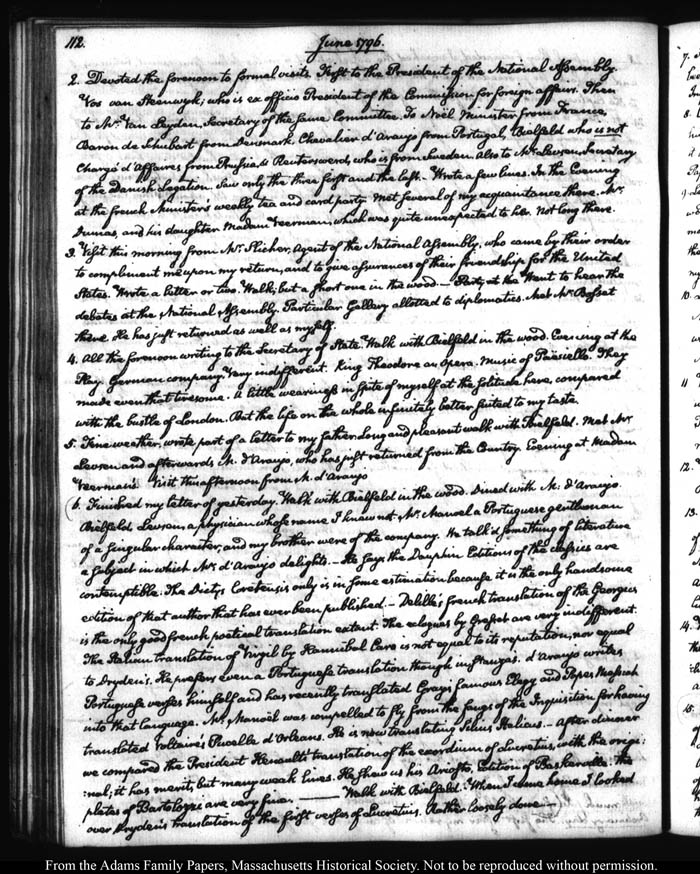 112.
June 1796.
2. Devoted the forenoon to formal visits. First to the President of the National Assembly.
Vos van Steenwyk; who is ex officio President of the Commission for foreign affairs. Then
to Mr. Van Leyden, Secretary of the same Committee. To Noël Minister from France,
Baron de Schubart from Denmark, Chevalier d'Araujo from Portugal, Bielfeld who is not
Chargé d'Affaires from Prussia, & Reuterswerd, who is from Sweden. Also to Mr. Levsen, Secretary
of the Danish Legation. Saw only the three first and the last. Wrote a few lines. In the Evening
at the french Minister's weekly tea and card party. Met several of my acquaintance there. Mr.
Dumas, and his daughter Madam Veerman, which was quite unexpected to her. Not long there.
3. Visit this morning from Mr. Slicher, Agent of the National Assembly, who came by their order
to complement me upon my return, and to give assurances of their friendship for the United
States. Wrote a letter or two. Walk; but a short one in the wood. — Party at the Went to hear the
debates at the National Assembly. Particular Gallery allotted to diplomatics. Met Mr. Bosset
there. He has just returned as well as myself.
4. All the forenoon writing to the Secretary of State. Walk with Bielfeld in the wood. Evening at the
Play. German company. Very indifferent. King Theodore an Opera. Music of Paesiello. They
made even that tiresome. A little weariness in spite of myself at the solitude here, compared
with the bustle of London. But the life on the whole infinitely better suited to my taste.
5. Fine weather, wrote part of a letter to my father. Long and pleasant walk with Bielfeld. Met Mr.
Levsen and afterwards M. d'Araujo, who has just returned from the Country. Evening at Madam
Veerman's. Visit this afternoon from M. d'Araujo
6. Finished my letter of yesterday. Walk with Bielfeld in the wood. Dined with M. d'Araujo.
Bielfeld, Levsen, a physician whose name I know not, Mr. Manoel a Portuguese gentleman
of a singular character, and my brother were of the company. We talk'd something of literature
a subject in which Mr. d'Araujo delights. — He says the Dauphin Editions of the classics are
contemptible. The Dictys Cretensis only is in some estimation because it is the only handsome
edition of that author that has ever been published. — Delille's french translation of the Georgics
is the only good french poetical translation extant. The eclogues by Gresset are very indifferent.
The Italian translation of Virgil by Hannibal Caro is not equal to its reputation, nor equal
to Dryden's. He prefers even a Portuguese translation though in
Portuguese verses himself and has recently translated Grays famous Elegy and Popes Messiah
into that language. Mr. Manoël was compelled to fly from the fangs of the Inquisition for having
translated Voltaire's Pucelle d'Orleans. He is now translating Silius Italicus. — After dinner
we compared the President Henault's translation of the exordium of Lucretius, with the origi:
:nal; it has merit, but many weak lines. He shew us his Ariosto, Edition of Baskerville. The
plates of Bartolozzi are very fine. — Walk with Bielfeld. When I came home I looked
over Dryden's translation of the first verses of Lucretius. Rather loosely done —
From the Adams Family Papers, Massachusetts Historical Society. Not to be reproduced without permission.